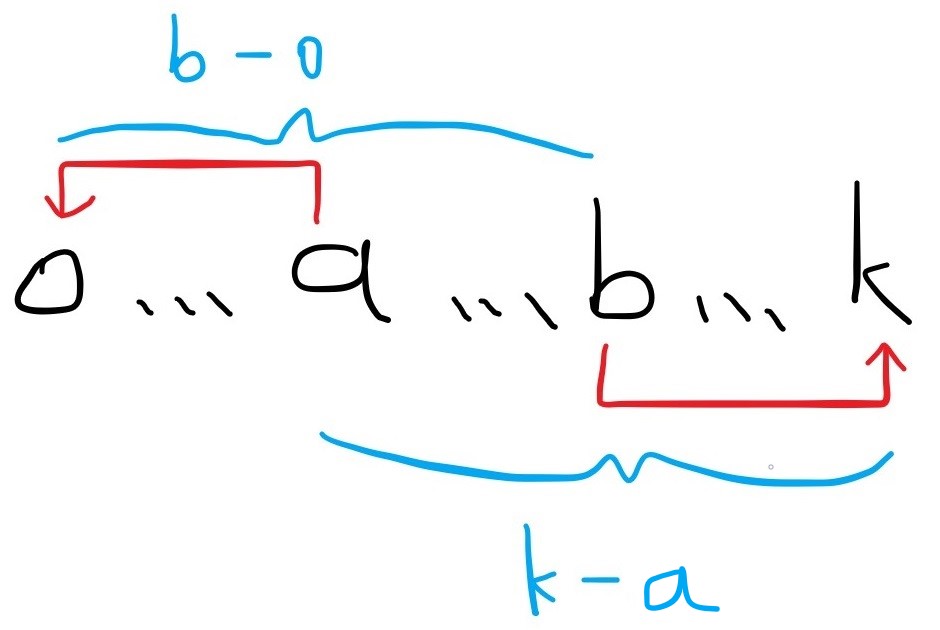 b - 0
0 ... a ... b ... k
k - a